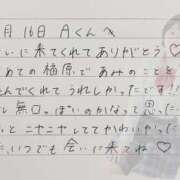 月16日 Aくんへ
いに来てくれてありがとう♡
めての橿原であみのことを
んでくれてうれしかったです!
し無口っぽいのかなって思った
とニヤニヤしててかわいかった
た、いつでも会いに来てね♡